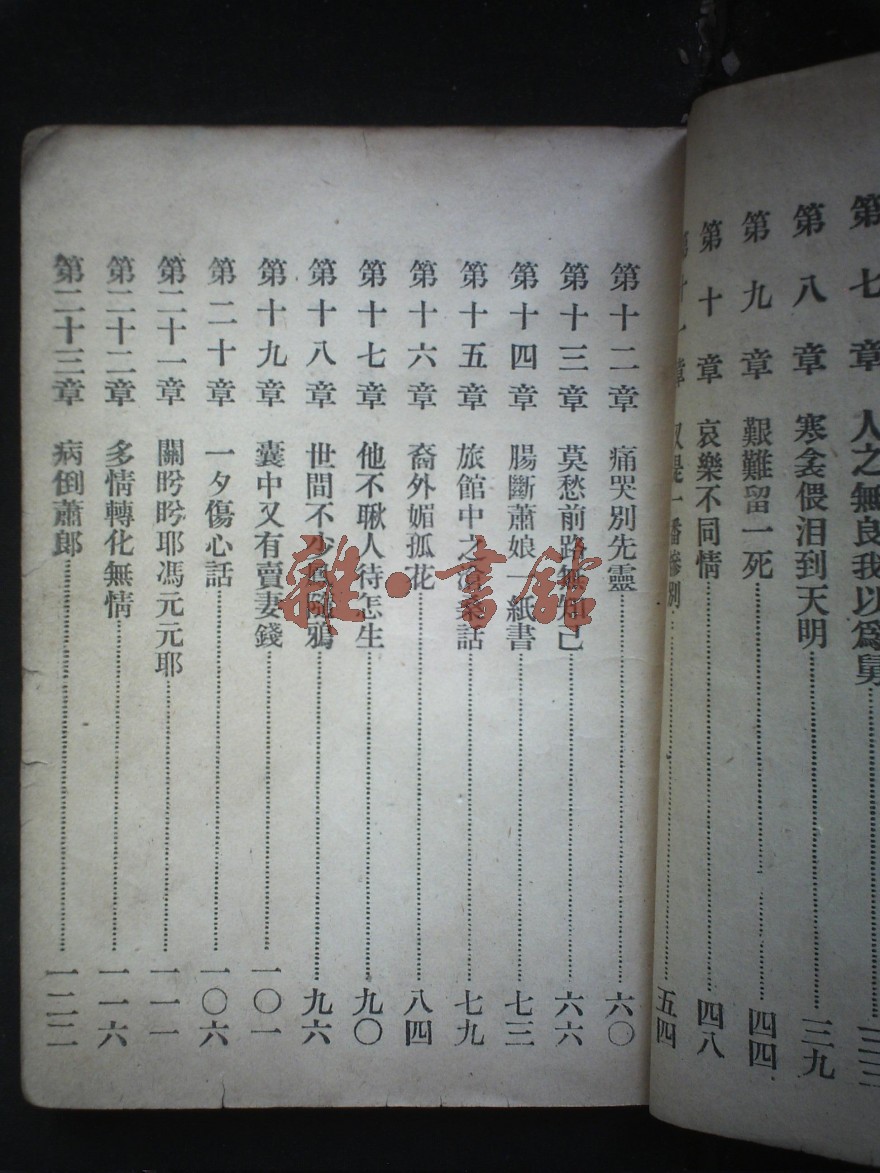 第七章 人之無良我以爲舅
第八章 寒衾偎泪到天明……三九
第九章 艱難留一死……四四
第十章 哀樂不同情……四八
第十一章 一番慘別……五四
第十二章 痛哭別先靈……六〇
第十三章 莫愁前路無知己……六六
第十四章 腸斷蕭娘一紙書……七三
第十五章 旅館中之滄桑話……七九
第十六章 裔外媚孤花……八四
第十七章 他不瞅人待怎生……九〇
第十八章 世間不少鳳隨鴉……九六
第十九章 囊中又有賣妻錢……一〇一
第二十章 一夕傷心話……一〇六
第二十一章 關盼盼耶馮元元耶……一一一
第二十二章 多情轉化無情……一一六
第二十三章 病倒蕭郎……一二二
雜·書館